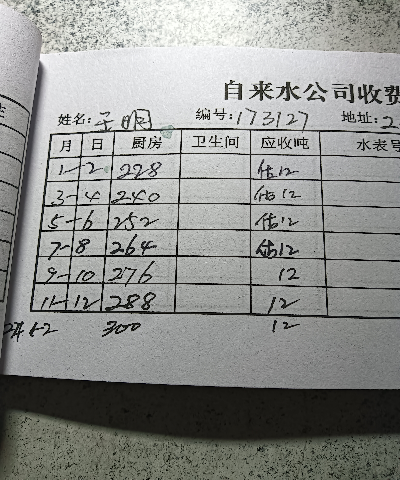 自来水公司收费
姓名: 王明 编号: 173127 地址: 2
月 日 厨房 卫生间 应收吨 水表号
1-2 228 估12
3-4 240 估12
5-6 252 估12
7-8 264 估12
9-10 276 12
11-12 288 12
1-2 300 12